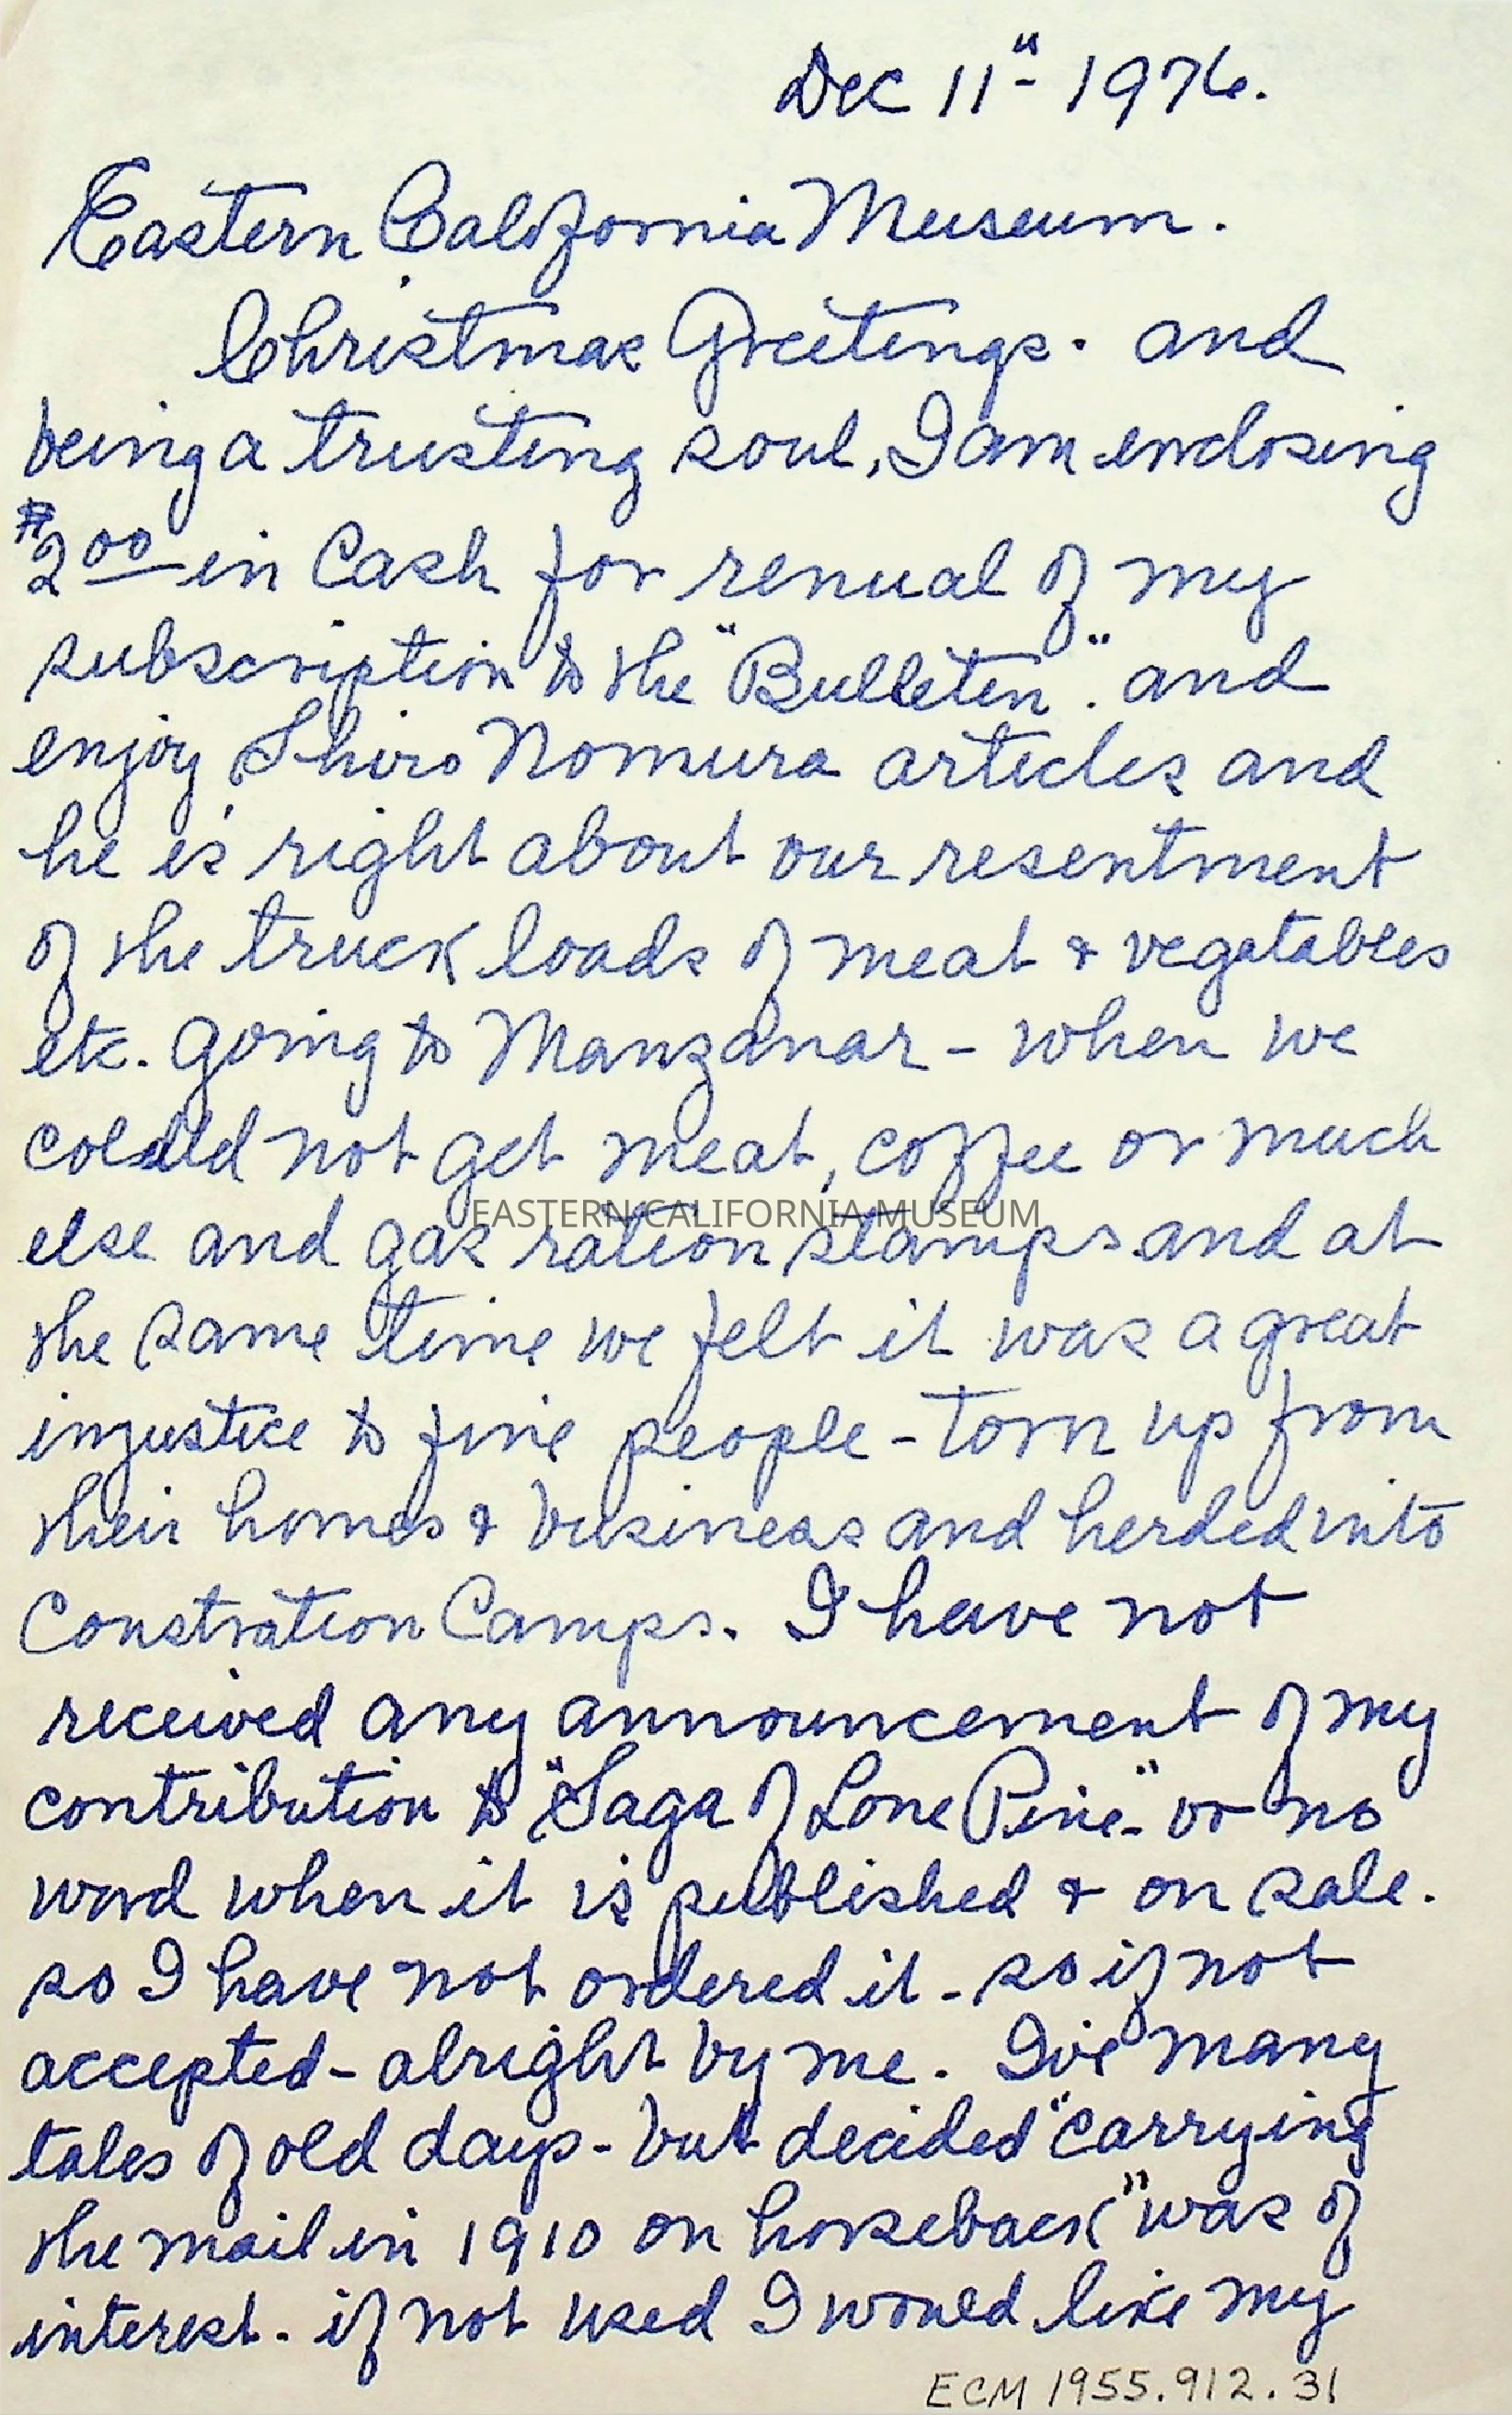 Dec 11" 1976.
Eastern California Museum.
Christmas Greetings. and
being a trusting soul, I am enclosing
$2 00 in Cash for renual of my
subscription to the "Bulletin". and
enjoy Shiro Nomura articles and
he is right about our resentment
of the truck loads of meat & vegatables
etc. going to Manzanar - when we
could not get meat, coffee or much
EASTERN CALIFORNIA MUSEUM
else and gas ration stamps and at
the same time we felt it was a great
injustice to fine people - torn up from
their homes & business and herded into
Constration Camps. I have not
received any announcement of my
contribution to "Saga of Lone Pine" - or no
word when it is published & on sale.
so I have not ordered it - so if not
accepted - alright by me. I've many
tales of old days - but decided "carrying
the mail in 1910 on horseback" was of
interest. if not used I would like my
ECM 1955.912.31